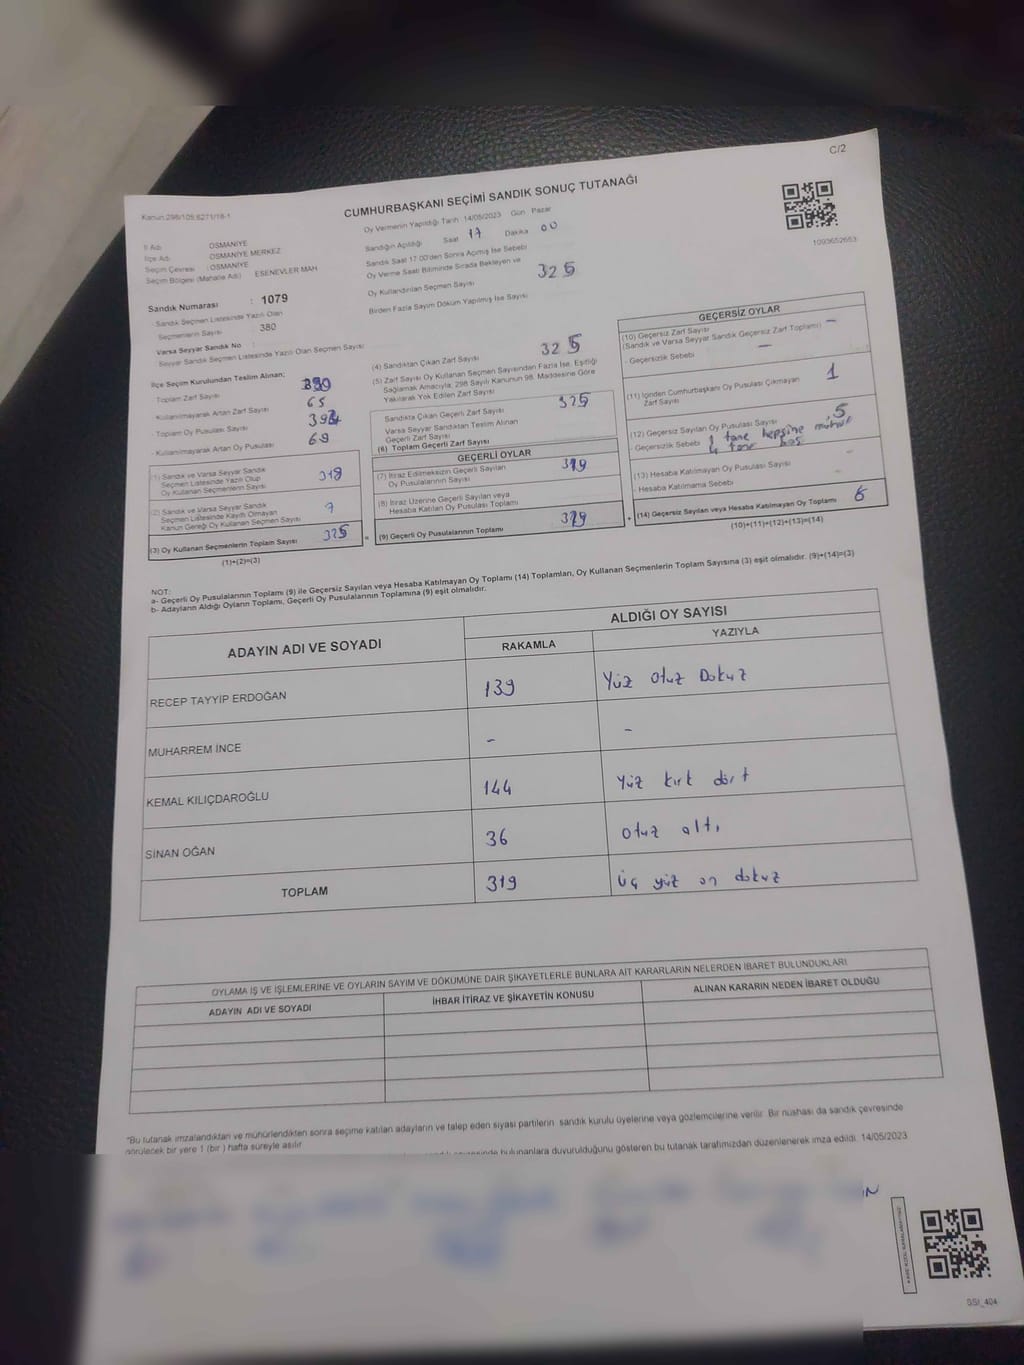 C/2
Kanun:298/105;6271/18-1
CUMHURBAŞKANI SEÇİMİ SANDIK SONUÇ TUTANAĞI
1093652653
İl Adı : OSMANİYE
İlçe Adı : OSMANİYE MERKEZ
Seçim Çevresi : OSMANİYE
Seçim Bölgesi (Mahalle Adı) : ESENEVLER MAH
Sandık Numarası : 1079
Sandık Seçmen Listesinde Yazılı Olan
Seçmenlerin Sayısı : 380
Varsa Seyyar Sandık No :
Seyyar Sandık Seçmen Listesinde Yazılı Olan Seçmen Sayısı
Oy Vermenin Yapıldığı Tarih : 14/05/2023 Gün : Pazar
Sandığın Açıldığı Saat 17 Dakika 00
Sandık Saat 17:00'den Sonra Açılmış İse Sebebi
Oy Verme Saati Bitiminde Sırada Bekleyen ve
Oy Kullandırılan Seçmen Sayısı 325
Birden Fazla Sayım Döküm Yapılmış İse Sayısı
İlçe Seçim Kurulundan Teslim Alınan;
Toplam Zarf Sayısı 390
Kullanılmayarak Artan Zarf Sayısı 65
Toplam Oy Pusulası Sayısı 394
Kullanılmayarak Artan Oy Pusulası 69
(1) Sandık ve Varsa Seyyar Sandık
Seçmen Listesinde Yazılı Olup
Oy Kullanan Seçmenlerin Sayısı 318
(2) Sandık ve Varsa Seyyar Sandık
Seçmen Listesinde Kayıtlı Olmayan
Kanun Gereği Oy Kullanan Seçmen Sayısı 7
(3) Oy Kullanan Seçmenlerin Toplam Sayısı 325
(1)+(2)=(3)
(4) Sandıktan Çıkan Zarf Sayısı 325
(5) Zarf Sayısı Oy Kullanan Seçmen Sayısından Fazla İse, Eşitliği
Sağlamak Amacıyla, 298 Sayılı Kanunun 98. Maddesine Göre
Yakılarak Yok Edilen Zarf Sayısı
Sandıkta Çıkan Geçerli Zarf Sayısı 325
Varsa Seyyar Sandıktan Teslim Alınan
Geçerli Zarf Sayısı
(6) Toplam Geçerli Zarf Sayısı
GEÇERLİ OYLAR
(7) İtiraz Edilmeksizin Geçerli Sayılan
Oy Pusulalarının Sayısı 319
(8) İtiraz Üzerine Geçerli Sayılan veya
Hesaba Katılan Oy Pusulası Toplamı
(9) Geçerli Oy Pusulalarının Toplamı 319
GEÇERSİZ OYLAR
(10) Geçersiz Zarf Sayısı
(Sandık ve Varsa Seyyar Sandık Geçersiz Zarf Toplamı) -
- Geçersizlik Sebebi -
(11) İçinden Cumhurbaşkanı Oy Pusulası Çıkmayan
Zarf Sayısı 1
(12) Geçersiz Sayılan Oy Pusulası Sayısı 5
- Geçersizlik Sebebi 1 tane hepsine mühür
4 tane boş
(13) Hesaba Katılmayan Oy Pusulası Sayısı -
- Hesaba Katılmama Sebebi -
(14) Geçersiz Sayılan veya Hesaba Katılmayan Oy Toplamı 6
(10)+(11)+(12)+(13)=(14)
NOT:
a- Geçerli Oy Pusulalarının Toplamı (9) ile Geçersiz Sayılan veya Hesaba Katılmayan Oy Toplamı (14) Toplamları, Oy Kullanan Seçmenlerin Toplam Sayısına (3) eşit olmalıdır. (9)+(14)=(3)
b- Adayların Aldığı Oyların Toplamı, Geçerli Oy Pusulalarının Toplamına (9) eşit olmalıdır.
ADAYIN ADI VE SOYADI ALDIĞI OY SAYISI
RAKAMLA YAZIYLA
RECEP TAYYİP ERDOĞAN 139 Yüz otuz Dokuz
MUHARREM İNCE - -
KEMAL KILIÇDAROĞLU 144 Yüz kırk dört
SİNAN OĞAN 36 otuz altı
TOPLAM 319 üç yüz on dokuz
OYLAMA İŞ VE İŞLEMLERİNE VE OYLARIN SAYIM VE DÖKÜMÜNE DAİR ŞİKAYETLERLE BUNLARA AİT KARARLARIN NELERDEN İBARET BULUNDUKLARI
ADAYIN ADI VE SOYADI İHBAR İTİRAZ VE ŞİKAYETİN KONUSU ALINAN KARARIN NEDEN İBARET OLDUĞU
"Bu tutanak imzalandıktan ve mühürlendikten sonra seçime katılan adayların ve talep eden siyasi partilerin sandık kurulu üyelerine veya gözlemcilerine verilir. Bir nüshası da sandık çevresinde
görülecek bir yere 1 (bir ) hafta süreyle asılır.
bulunanlara duyurulduğunu gösteren bu tutanak tarafımızdan düzenlenerek imza edildi. 14/05/2023
SSI_404